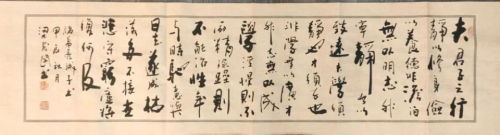 夫君子之行
靜以修身儉
以養德非澹泊
無以明志非
寧靜無以
致遠夫學須
靜也才須學也
非學無以廣才
非志無以成
學淫慢則不
能勵精險躁則
不能治性年
與時馳意與
日去遂成枯
落多不接世
悲守窮廬將
復何及